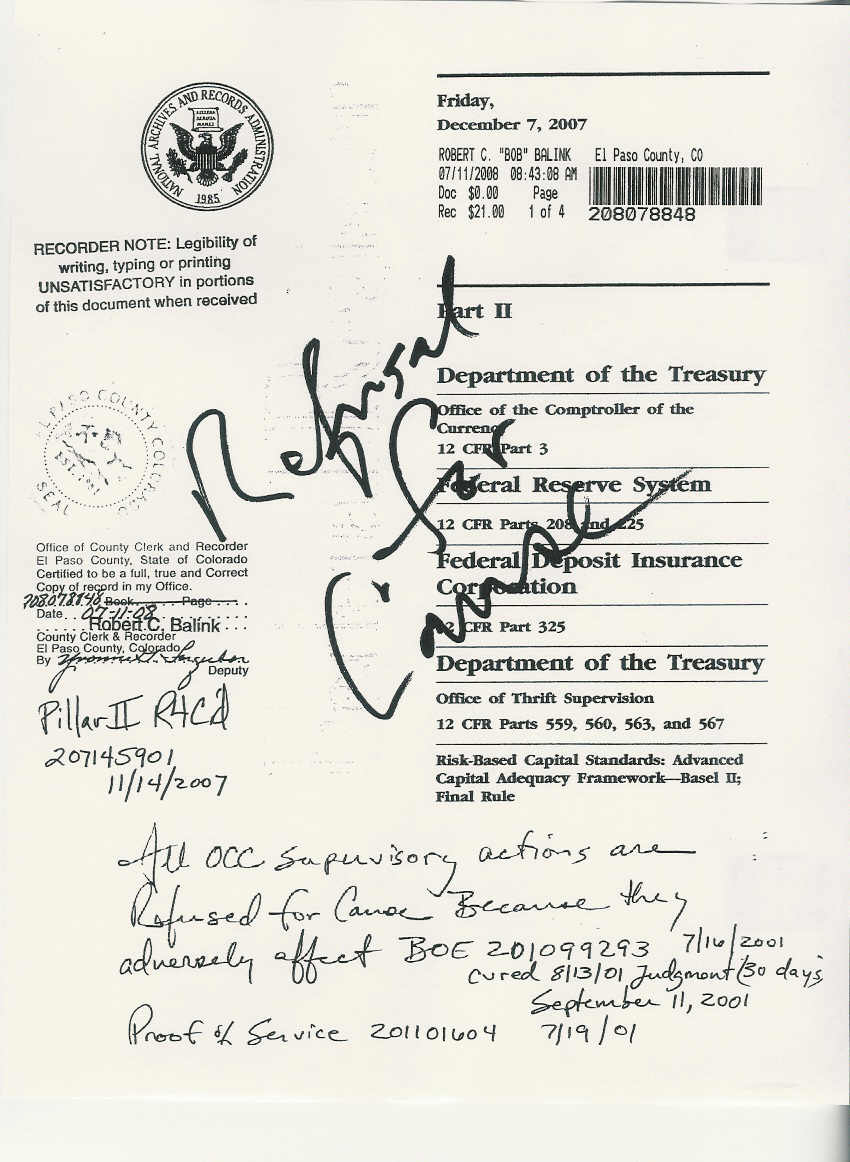 NATIONAL ARCHIVES AND RECORDS ADMINISTRATION
LITTERA
SCRIPTA
MANET
1985
Friday,
December 7, 2007
ROBERT C. "BOB" BALINK El Paso County, CO
07/11/2008 08:43:08 AM
Doc $0.00 Page
Rec $21.00 1 of 4 208078848
RECORDER NOTE: Legibility of
writing, typing or printing
UNSATISFACTORY in portions
of this document when received
Part II
Department of the Treasury
Office of the Comptroller of the
Currency
12 CFR Part 3
Federal Reserve System
12 CFR Parts 208 and 225
Federal Deposit Insurance
Corporation
12 CFR Part 325
Department of the Treasury
Office of Thrift Supervision
12 CFR Parts 559, 560, 563, and 567
Risk-Based Capital Standards: Advanced
Capital Adequacy Framework—Basel II;
Final Rule
Refusal
for
Cause
EL PASO COUNTY COLORADO
SEAL
Office of County Clerk and Recorder
El Paso County, State of Colorado
Certified to be a full, true and Correct
Copy of record in my Office.
208078848 Book........Page....
Date..07-11-08
Robert C. Balink
County Clerk & Recorder
El Paso County, Colorado
By
Deputy
Pillar II R4C'd
207145901
11/14/2007
All OCC supervisory actions are
Refused for Cause Because they
adversely affect BOE 201099293 7/16/2001
cured 8/13/01 Judgment (30 days)
September 11, 2001
Proof of Service 201101604 7/19/01